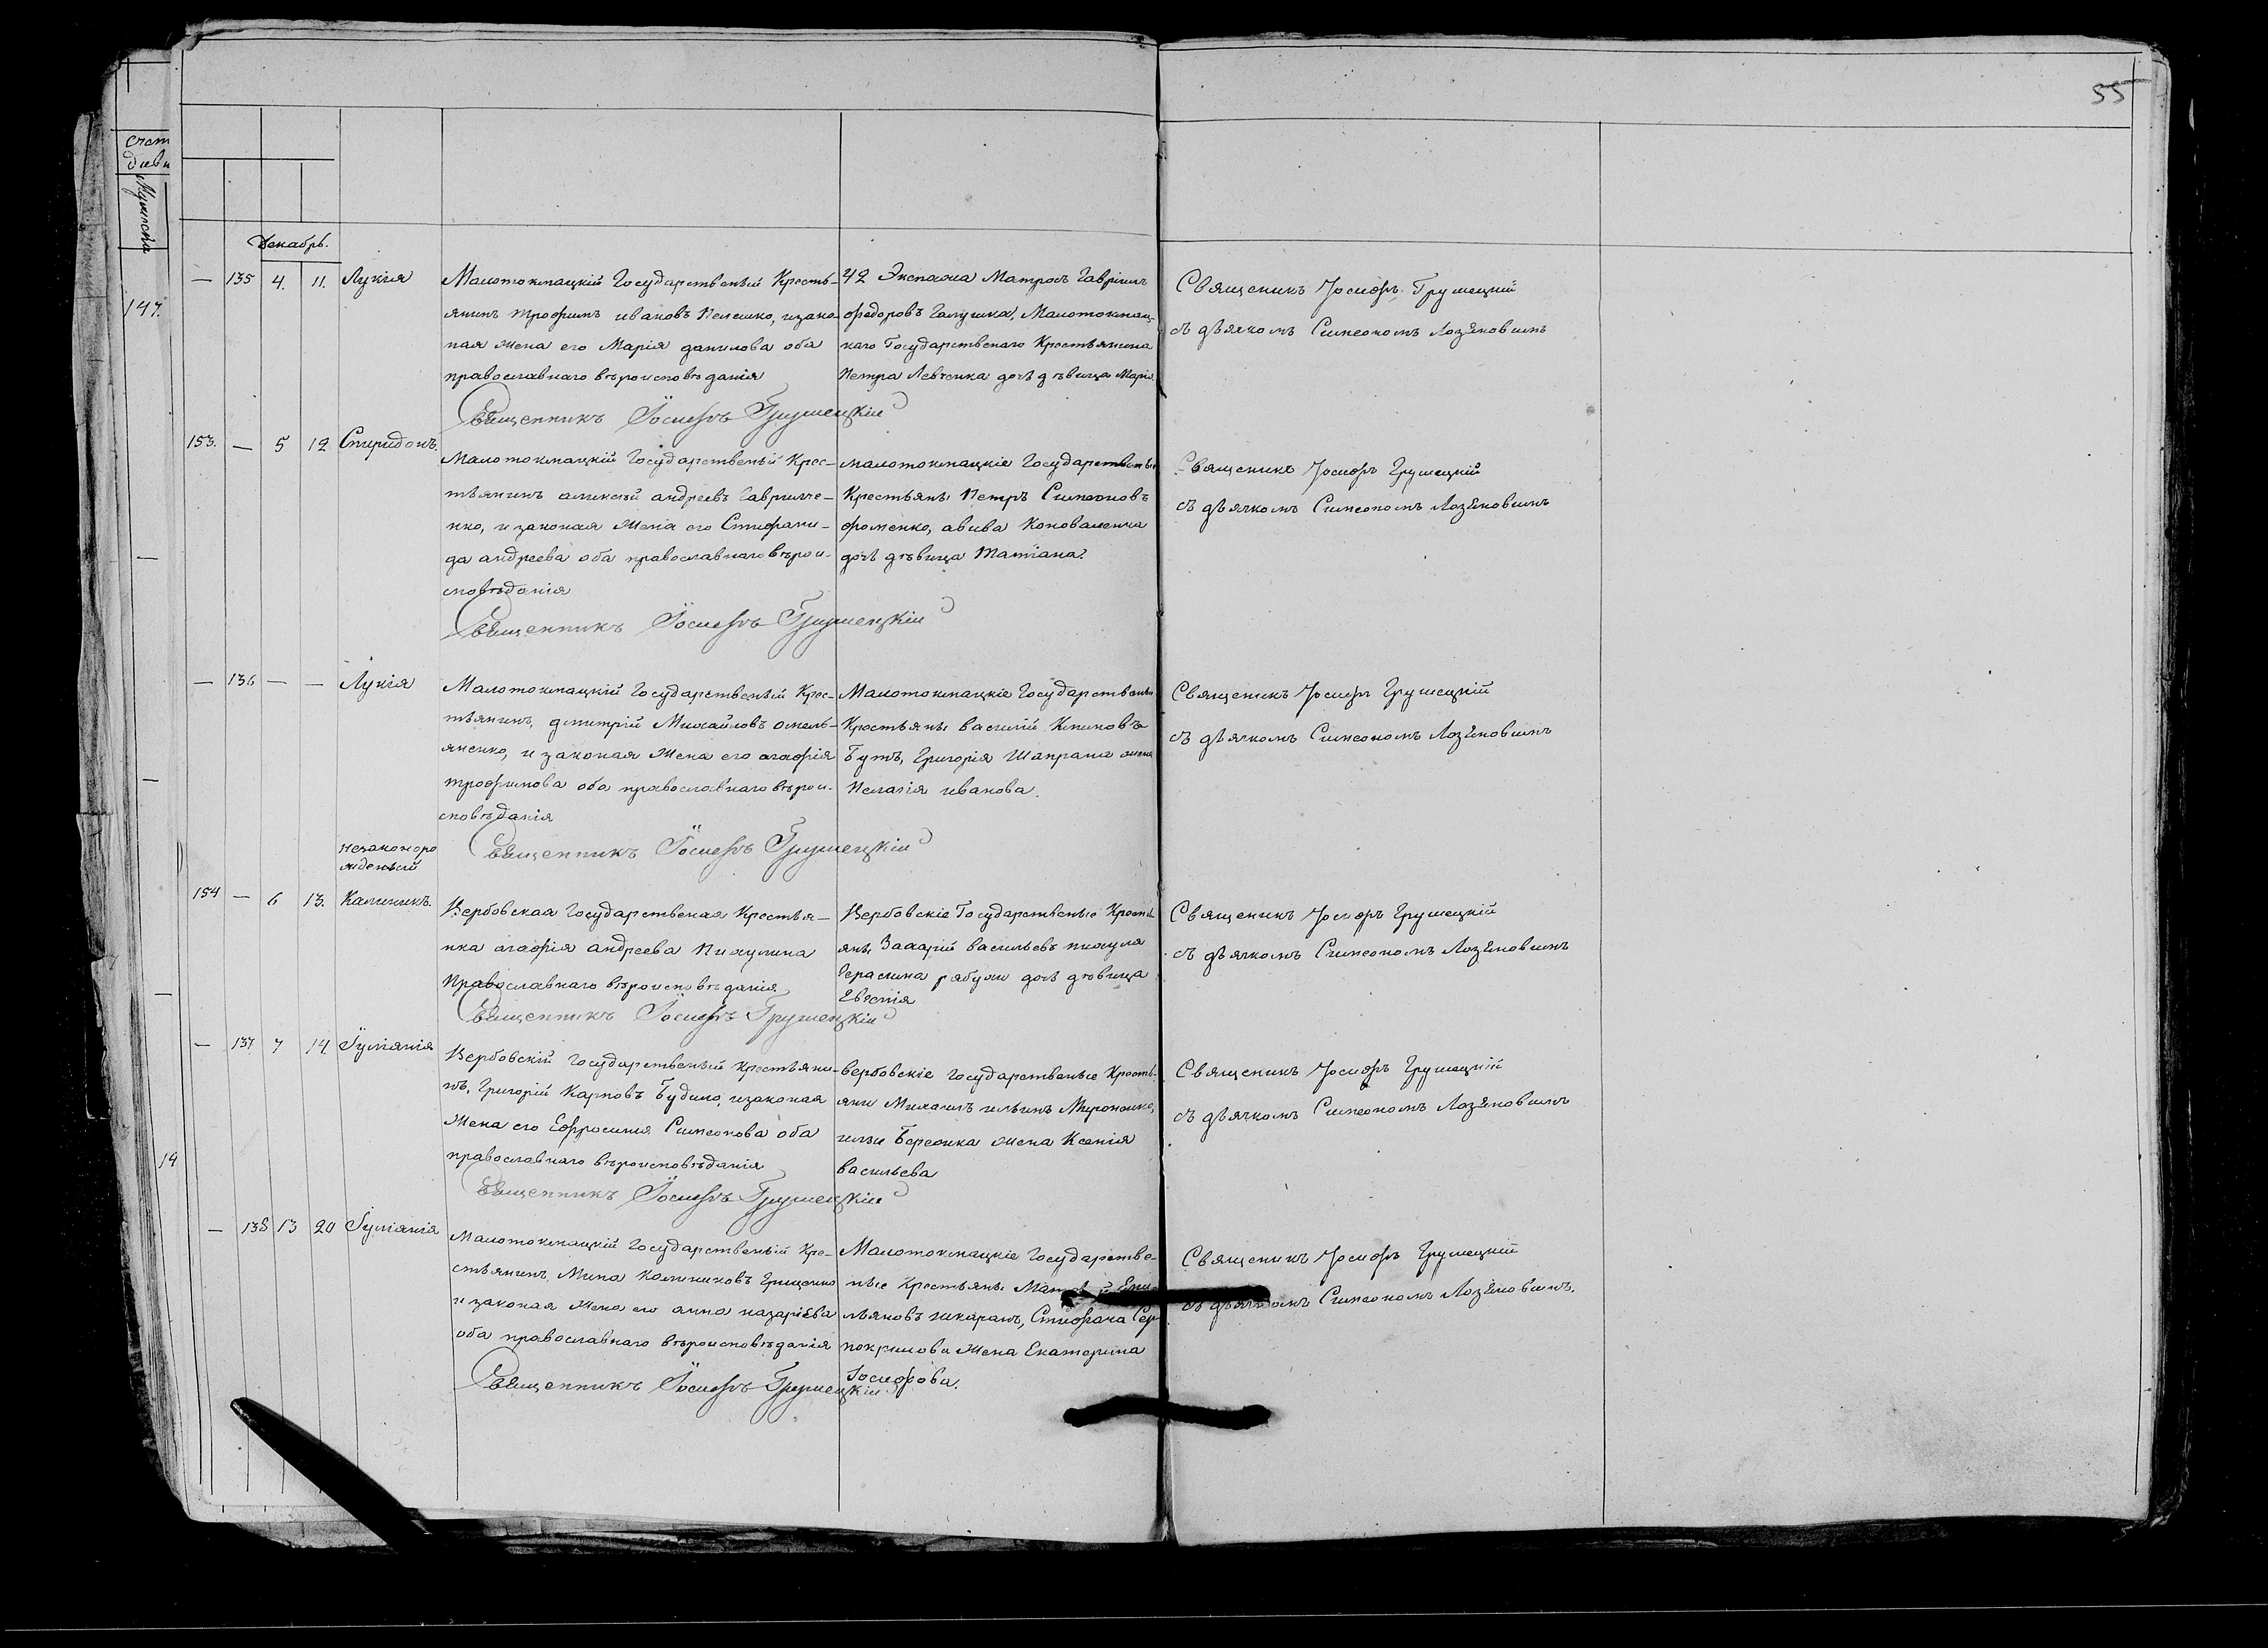 55
Счет
Мужеска
Декабрь.
147.
— 135 4. 11. Лукія
Малотокмацкій Государственый Кресть-
янинъ трофимъ ивановъ Пелешко, изако-
ная жена его Марія данилова оба
православнаго вѣроисповѣданія
Священникъ Іосифъ Грушецкій
42 Экипажа Матросъ Гавріилъ
федоровъ Галушка, Малотокмац-
каго Государственаго Крестьянина
Петра Левченка дочь дѣвица Марія
Священикъ Іосифъ Грушецкий
съ дьячкомъ Симеономъ Лозяновымъ
153. — 5 12 Спиридонъ.
Малотокмацкій Государственый Крес-
тьянинъ алексій андреевъ Гавриле-
нко, и законая жена его Стефани-
да андреева оба православнаго вѣрои-
сповѣданія
Священникъ Іосифъ Грушецкій
малотокмацкіе Государственые
Крестьяне Петръ Симеоновъ
фоменко, авива Коноваленка
дочь дѣвица Татіана.
Священикъ Іосифъ Грушецкій
съ дьячкомъ Симеономъ Лозяновымъ
— 136 — — Лукія
Малотокмацкій Государственый Крес-
тьянинъ, дмитрій Михайловъ омель-
яненко, и законая жена его агафія
трофимова оба православнаго вѣрои-
сповѣданія
Священникъ Іосифъ Грушецкій
Малотокмацкіе Государственые
Крестьяне василій Климовъ
Бутъ, Григорія Шапрана жена
Пелагія иванова.
Священикъ Іосифъ Грушецкій
съ дьячкомъ Симеономъ Лозяновымъ
незаконоро
жденый
154 — 6 13. Калиникъ.
Вербовская Государственая Крестья-
нка агафія андреева Пихулина
Православнаго вѣроисповѣданія
Священникъ Іосифъ Грушецкій
Вербовскіе Государственые Кресть
яне Захарій васильевъ пихуля
Герасима рябухи дочь дѣвица
Евгенія
Священикъ Іосифъ Грушецкій
съ дьячкомъ Симеономъ Лозяновымъ
— 137 7 14 Іуліянія
Вербовскій Государственый Крестьяни-
нъ, Григорій Карповъ Будило, изаконая
жена его Ефросинія Симеонова оба
православнаго вѣроисповѣданія
Священникъ Іосифъ Грушецкій
вербовскіе Государственые Кресть-
яне Михаилъ ильинъ Мироненко,
ильи жена Ксенія
васильева
Священикъ Іосифъ Грушецкій
съ дьячкомъ Симеономъ Лозяновымъ
14
— 138 13 20 Іуліянія
Малотокмацкій Государственый Кре-
стьянинъ, Мина Калениковъ Грищенко
и законая жена его анна назаріева
оба православнаго вѣроисповѣданія
Священникъ Іосифъ Грушецкій
Малотокмацкіе Государстве-
ные Крестьяне Матвей Еми-
льяновъ шкаранъ, Стефана
жена Екатерина
Іосифова.
Священикъ Іосифъ Грушецкій
съ дьячкомъ Симеономъ Лозяновымъ.